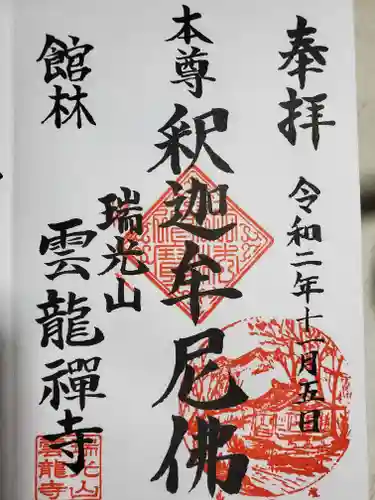 奉拝
令和二年十一月五日
本尊
釈迦牟尼佛
瑞光山
館林
雲龍禪寺
瑞光山
雲龍寺